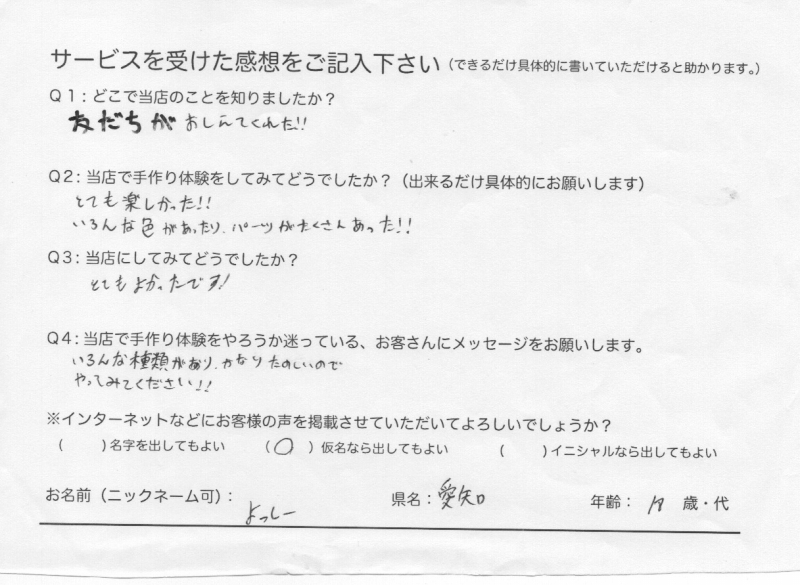 サービスを受けた感想をご記入下さい（できるだけ具体的に書いていただけると助かります。）
Q1：どこで当店のことを知りましたか？
友だちが おしえてくれた!!
Q2：当店で手作り体験をしてみてどうでしたか？（出来るだけ具体的にお願いします）
とても楽しかった!!
いろんな色があったり、パーツがたくさんあった!!
Q3：当店にしてみてどうでしたか？
とてもよかったです!
Q4：当店で手作り体験をやろうか迷っている、お客さんにメッセージをお願いします。
いろんな種類があり、かなりたのしいので
やってみてください!!
※インターネットなどにお客様の声を掲載させていただいてよろしいでしょうか？
（　）名字を出してもよい　（○）仮名なら出してもよい　（　）イニシャルなら出してもよい
お名前（ニックネーム可）：よっしー　県名：愛知　年齢：　歳・代